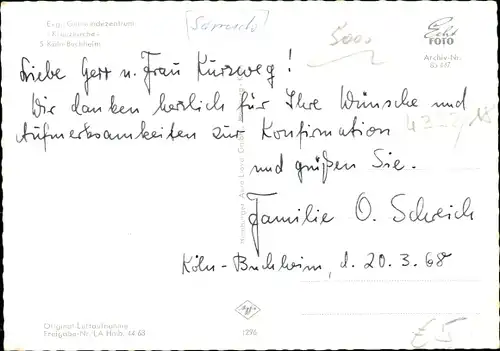 Ev. Gemeindezentrum
"Kreuzkirche"
5 Köln-Buchheim
5000
Echt
FOTO
Archiv-Nr.
Liebe Herr u. Frau Kurzweg!
Wir danken herzlich für Ihre Wünsche und
Aufmerksamkeiten zur Konfirmation
und grüßen Sie.
Familie O. Schreich
Köln-Buchheim, d. 20.3.68
Original-Luftaufnahme
Freigabe-Nr. LA Hmb. 44/63
1296
€5